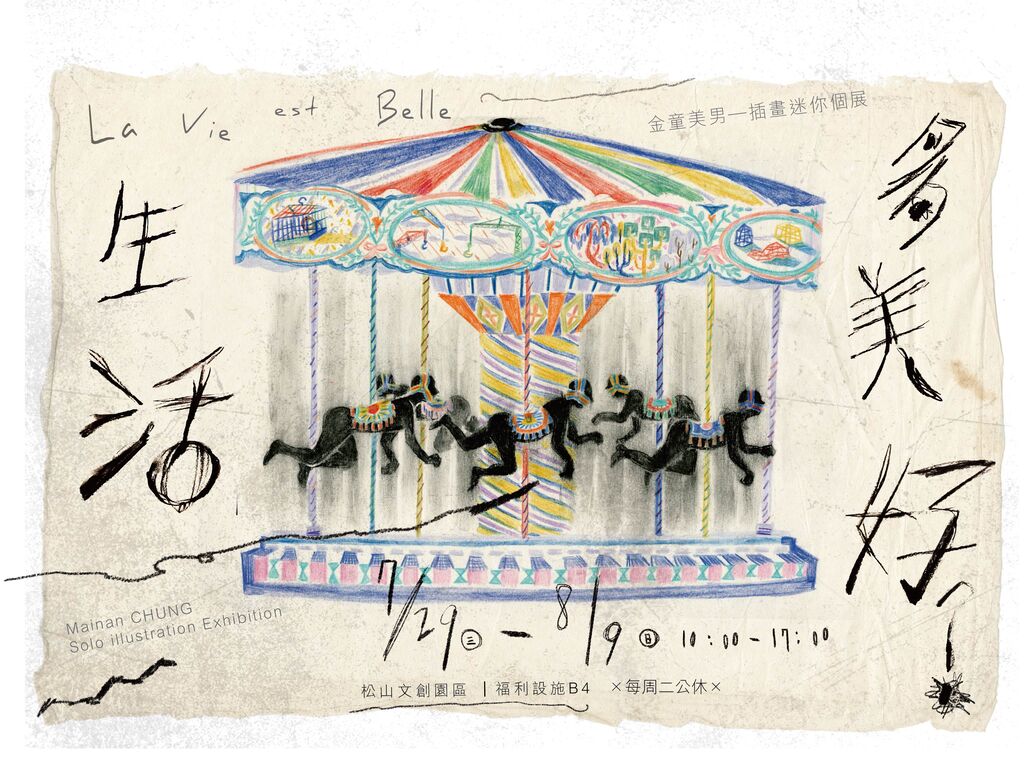 La Vie est Belle
金童美男—插畫迷你個展
生活
多美好
Mainan CHUNG
Solo illustration Exhibition
7/29㊂-8/9㊐ 10:00-17:00
松山文創園區 | 福利設施B4 ×每周二公休×